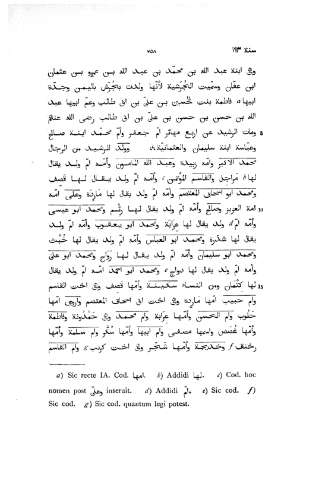 سنة ١٩٣ ٧٥٨
وهى ابنة عبد الله بن محمّد بن عبد الله بن عمرو بن عثمان
ابن عفّان وسمّيت الجُرَشيّة لأنّها ولدت بجُرَش باليمن وجدّة
ابيها a فاطمة بنت الحسين بن علىّ بن ابى طالب وعمّ ابيها عبد
الله بن حسن بن حسن بن علىّ بن ابى طالب رضى الله عنهم
٥ ومات الرشيد عن اربع مهائر امّ جعفر وامّ محمّد ابنة صالح
وعبّاسة ابنة سليمان والعثمانيّة، وولد للرشيد من الرجال
محمد الاكبر وامّه زبيدة وعبد الله المأمون وامّه امّ ولد يقال
لها b مراجل والقاسم المؤتمن c وامّه امّ ولد يقال لها قصف
ومحمد ابو اسحاق المعتصم وامّه امّ ولد يقال لها ماردة وعلىّ امّه
١٠ امة العزيز وصالح وامّه امّ ولد يقال لها رئم ومحمد ابو عيسى
وامّه امّ d ولد يقال لها عرابة ومحمد ابو يعقوب وامّه امّ ولد
يقال لها شذرة ومحمد ابو العباس وامّه امّ ولد يقال لها خُبْث
ومحمد ابو سليمان وامّه امّ ولد يقال لها رواح ومحمد ابو علىّ
وامّه امّ ولد يقال لها دواج e ومحمد ابو احمد امّه امّ ولد يقال
١٥ لها كتمان ومن النساء سكينة وامّها قصف وهى اخت القاسم
وام حبيب امها ماردة وهى اخت ابى اسحاق المعتصم واروى امها
حلوب وام الحسن وامّها عرابة وام محمد وهى حمدونة وفاطمة
وامّها غصص واسمها مصفى وام ابيها وامّها سكر وام سلمة وامّها
f وخديجة وامّها شجر وهى اخت كريب g وام القاسم
a) Sic recte IA. Cod. امها. b) Addidi لها. c) Cod. hoc
nomen post وعلىّ inserit. d) Addidi امّ. e) Sic cod. f)
Sic cod. g) Sic cod. quantum legi potest.